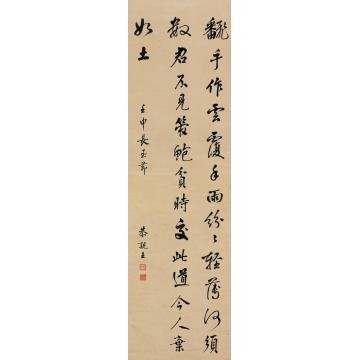 飜手作雲覆手雨紛〻輕薄何須
數君不見管鮑貧時交此道今人棄
如土
壬申長至節
恭親王